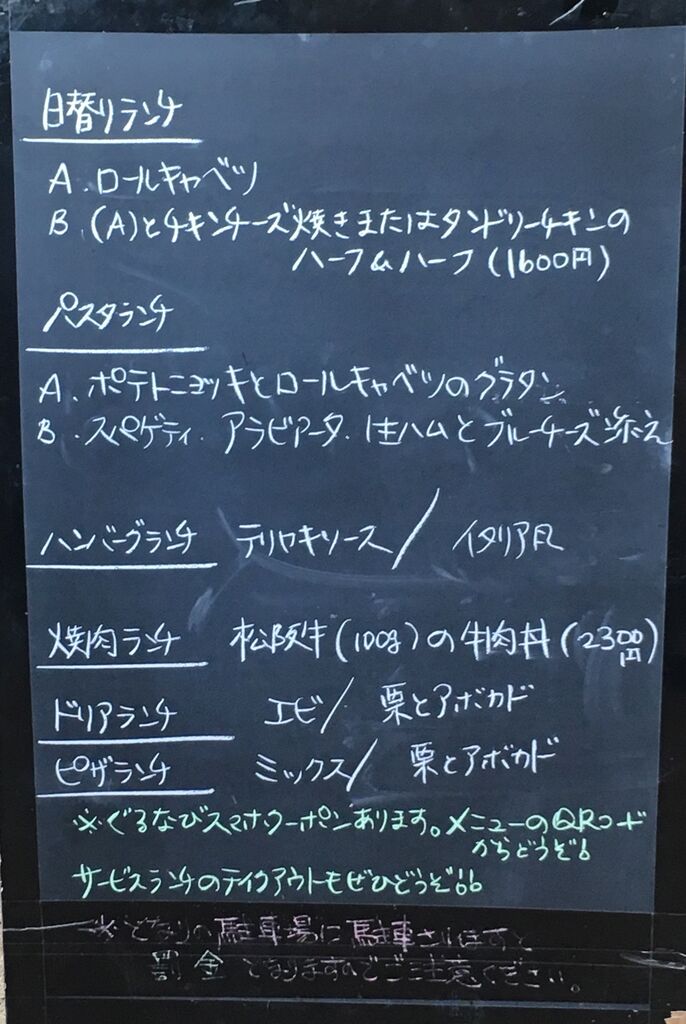 日替りランチ
A.ロールキャベツ
B.(A)とチキンチーズ焼きまたはタンドリーチキンの
ハーフ&ハーフ(1600円)
パスタランチ
A.ポテトニョッキとロールキャベツのグラタン
B.スパゲティ.アラビアータ.生ハムとブルーチーズ添え
ハンバーグランチ テリヤキソース/イタリア風
焼肉ランチ 松阪牛(100g)の牛肉丼(2300円)
ドリアランチ エビ/栗とアボカド
ピザランチ ミックス/栗とアボカド
※ぐるなびスマホクーポンあります。メニューのQRコード
からどうぞ!
サービスランチのテイクアウトもぜひどうぞ!!
※となりの駐車場に駐車されますと
罰金となりますのでご注意ください。